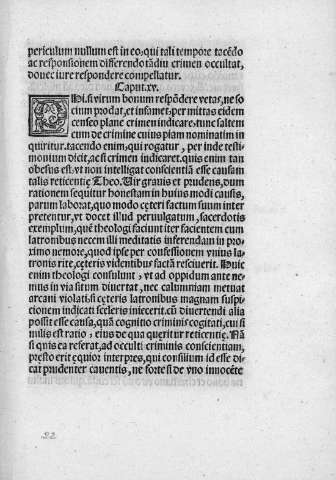 periculum nullum est in eo, qui tali tempore tacẽdo
ac responsionem differendo tãdiu crimen occultat,
donec iure respondere compellatur.
Caput.xv.
QUi, si virum bonum respõdere vetas, ne so
cium prodat, et infamet, permittas eidem
censeo plane crimen indicare, tunc saltem
cum de crimine cuius piam nominatim in
quiritur. tacendo enim, qui rogatur, perinde testi
monium dicit, ac si crimen indicaret. quis enim tan
obesus est, vt non intelligat conscientiã esse causam
talis reticentię Theo. Vir grauis et prudens, dum
rationem sequitur honestam in huius modi causis,
parum laborat, quo modo cęteri factum suum inter
pretentur, vt docet illud peruulgatum, sacerdotis
exemplum, quẽ theologi faciunt iter facientem cum
latronibus necem illi meditatis inferendam in pro
ximo nemore, quod ipse per confessionem vnius la-
tronis rite, cęteris videntibus factã resciuerit. Huic
enim theologi consulunt, vt ad oppidum ante ne-
mus in via situm diuertat, nec calumniam metuat
arcani violati, si cęteris latronibus magnam suspi-
cionem indicati sceleris iniecerit. cũ diuertendi alia
possit esse causa, quã cognitio criminis cogitati, cui si
milis est ratio, eius de qua queritur reticentię. Nã
si quis ea referat, ad occulti criminis conscientiam,
presto erit ęquior interpres, qui consilium id esse di-
cat prudenter cauentis, ne forte si de vno innocẽte
22